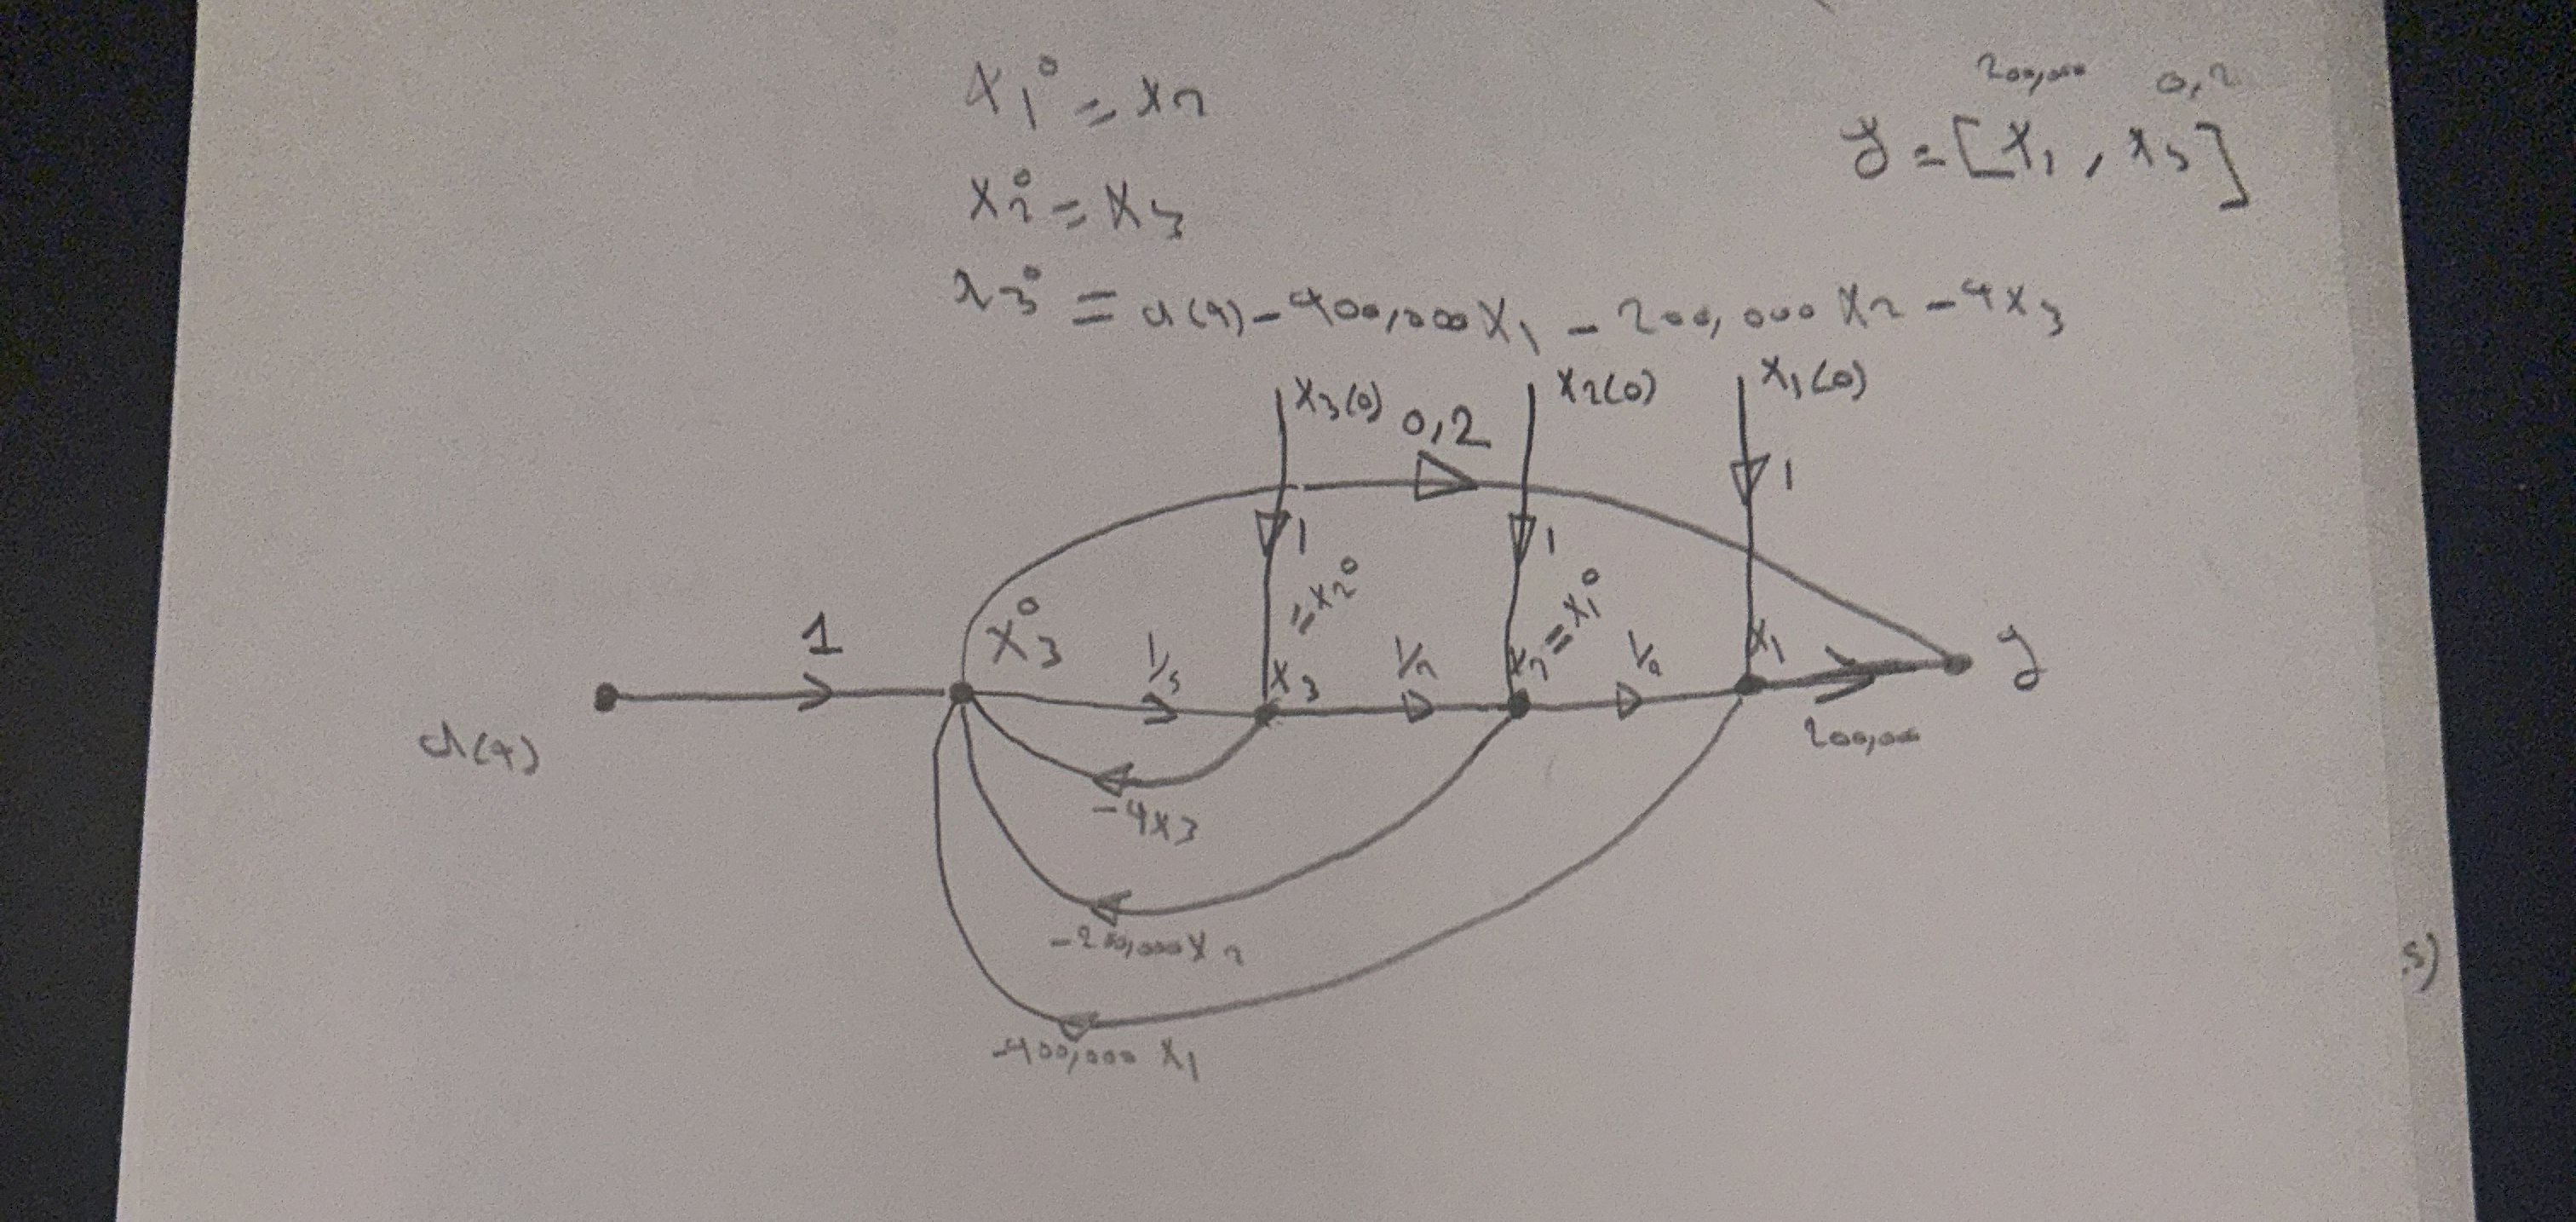 x₁° = x₂
x₂° = x₃
x₃° = u(t) - 400,000x₁ - 200,000x₂ - 4x₃
200,000 0,2
y = [x₁, x₃]
x₃(0) x₂(0) x₁(0)
0,2
1 1 1
1 x₃° 1/s x₃ = x₂° 1/s x₂ = x₁° 1/s x₁ y
u(t)
200,000
-4x₃
-200,000x₂
-400,000 x₁
s)